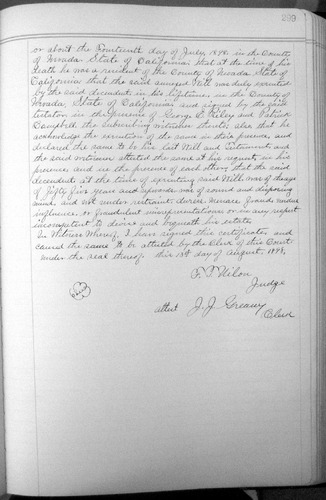 299
or about the Fourteenth day of July, 1898, in the County
of Nevada State of California; that at the time of his
death he was a resident of the County of Nevada State of
California that the said annexed Will was duly executed
by the said decedent in his lifetime, in the County of
Nevada, State of California; and signed by the said
testator in the presence of George C. Riley and Patrick
Campbell, the subscribing witnesses thereto; also that he
acknowledge the execution of the same in their presence, and
declared the same to be his last Will and Testament, and
the said witnesses attested the same at his request in his
presence, and in the presence of each other; that the said
decedent at the time of executing said Will was of the age
of Fifty five years and upwards, was of sound and disposing
mind, and not under restraint, duress, menace, frauds undue
influence, or fraudulent misrepresentations or in any respect
incompetent to devise and bequeath his estate.
In Witness Whereof, I have signed this certificate, and
caused the same to be attested by the Clerk of this Court
under the seal thereof. this 15th day of August, 1898,
Judge
Seal
attest J. J. Greany
Clerk